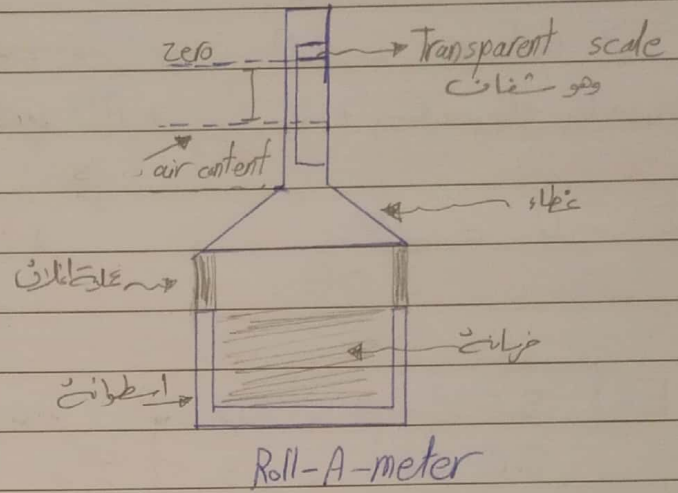 zero
Transparent scale
وهو شفاف
air content
غطاء
خرسانة
اسطوانة
Roll-A-meter